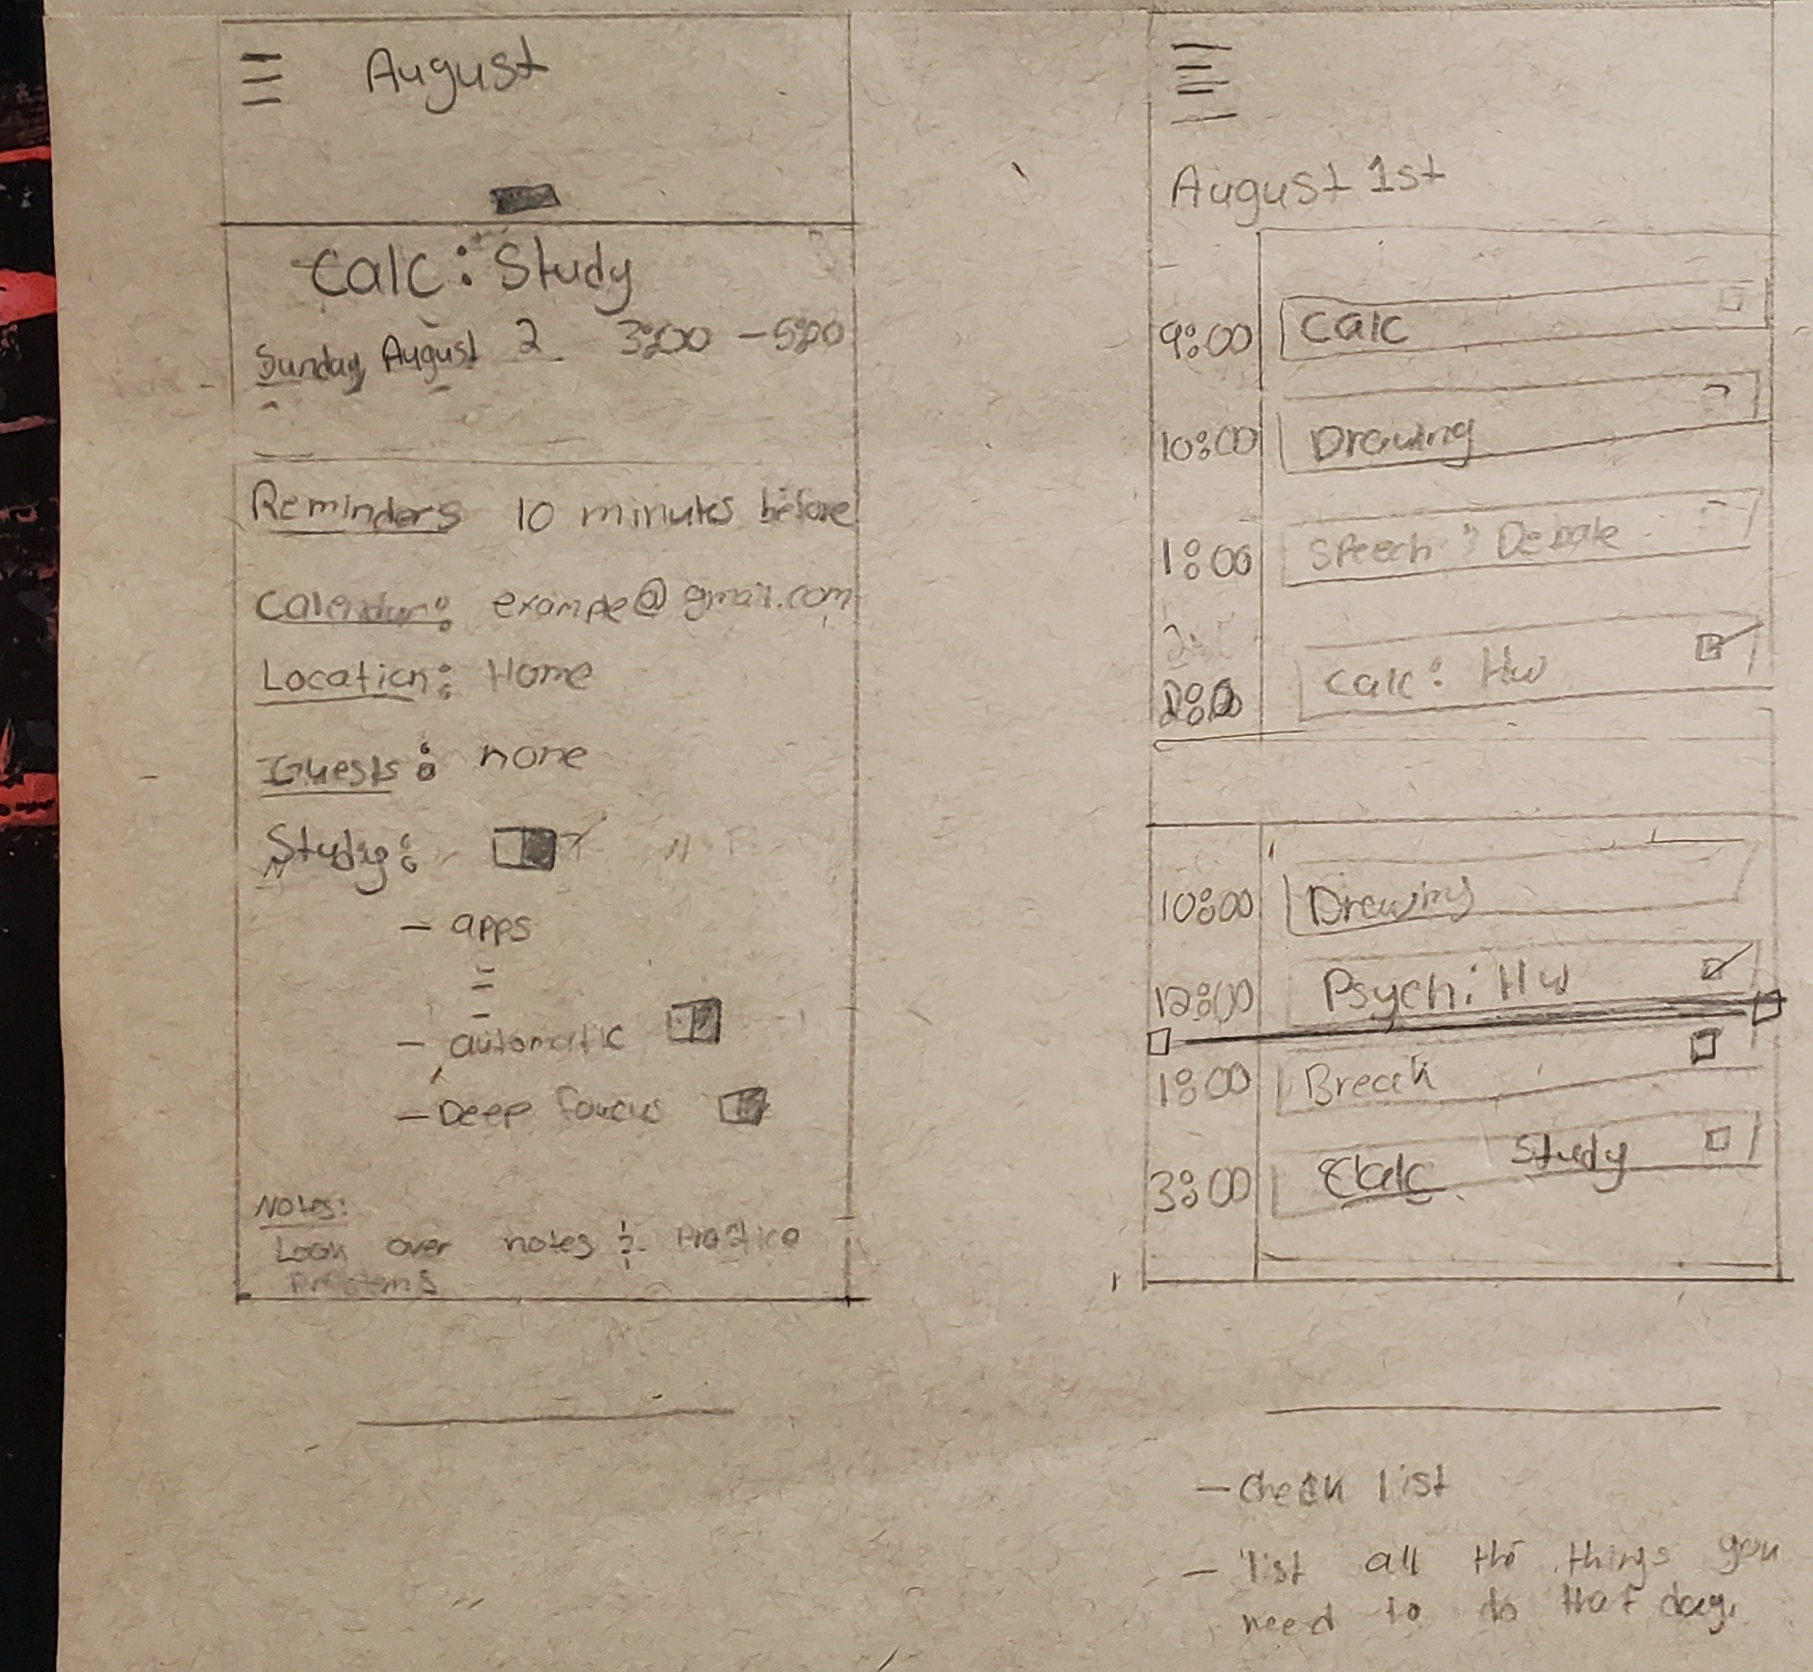 August
Calc: Study
Sunday August 2 3:00 - 5:00
Reminders 10 minutes before
Calendar: exampe@gmail.com
Location: Home
Guests: none
Study:
- apps
- automatic
- Deep foucus
Notes:
Look over notes & Practice
problems
August 1st
9:00 Calc
10:00 Drawing
1:00 Speech & Debate
Calc: Hw
10:00 Drawing
12:00 Psych: Hw
1:00 Break
3:00 Calc Study
- Check list
- list all the things you
need to do that day.